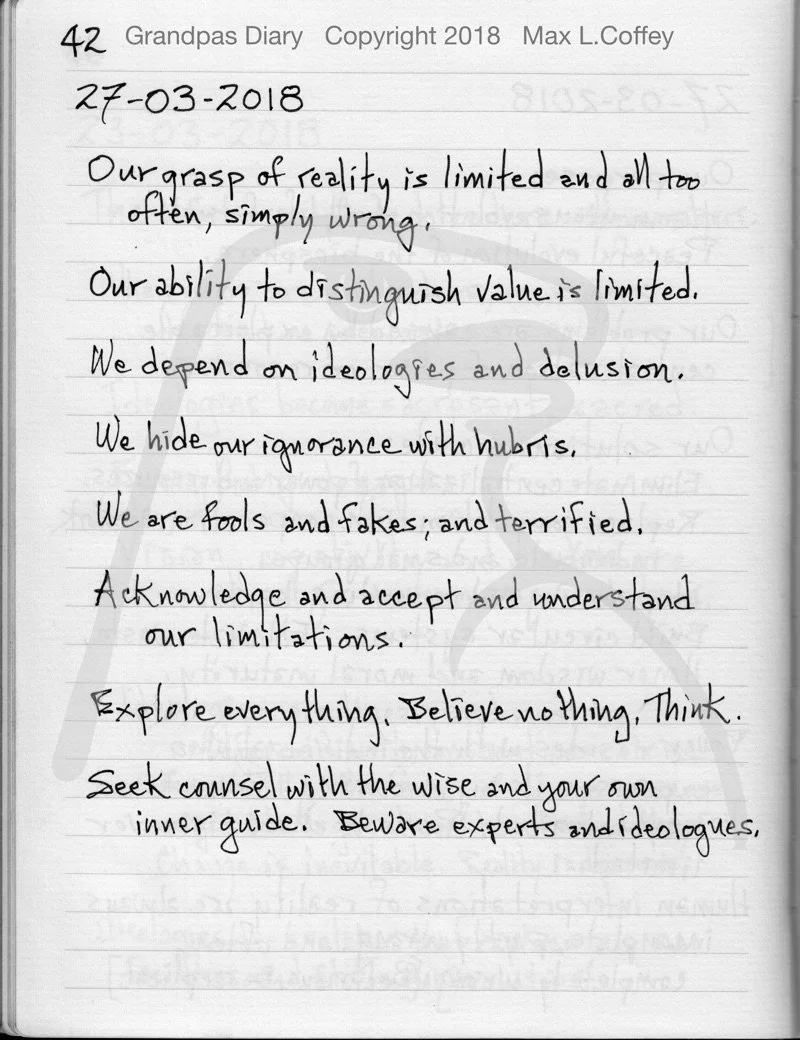 42 Grandpas Diary Copyright 2018 Max L.Coffey
27-03-2018
Our grasp of reality is limited and all too
often, simply wrong.
Our ability to distinguish value is limited.
We depend on ideologies and delusion.
We hide our ignorance with hubris.
We are fools and fakes; and terrified.
Acknowledge and accept and understand
our limitations.
Explore everything. Believe nothing. Think.
Seek counsel with the wise and your own
inner guide. Beware experts and ideologues.